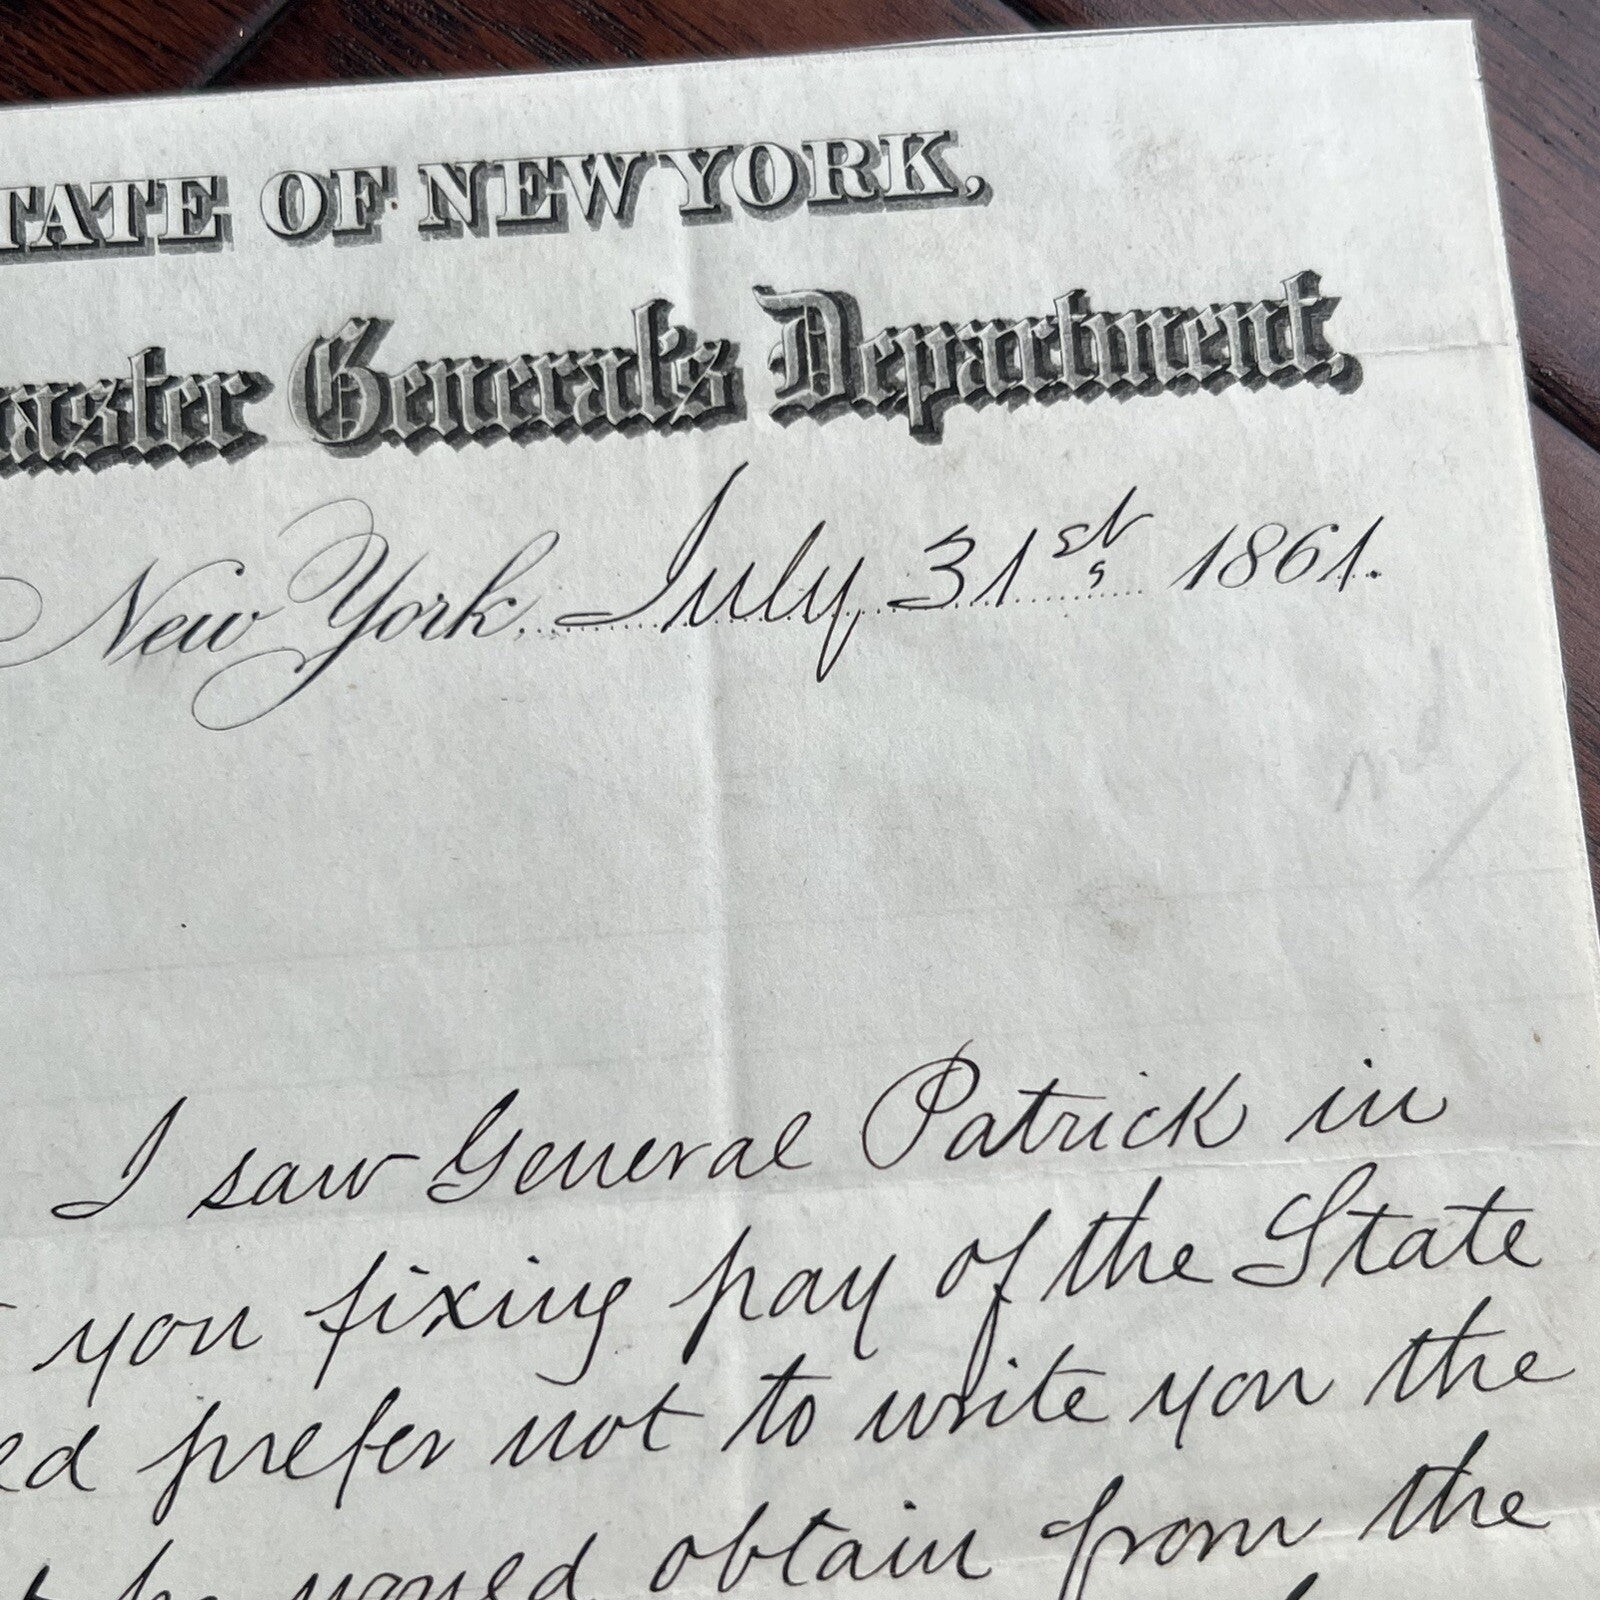 TATE OF NEW YORK,
aster General's Department,
New York, July 31st, 1861.
I saw General Patrick in
you fixing pay of the State
ed prefer not to write you the
obtain from the